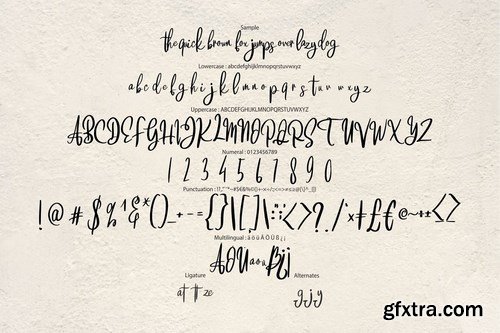 Sample
the quick brown fox jumps over lazy dog
Lowercase : abcdefghijklmnopqrstuvwxyz
abcdefghijklmnopqrstuvwxyz
Uppercase : ABCDEFGHIJKLMNOPQRSTUVWXYZ
ABCDEFGHIJKLMNOPQRSTUVWXYZ
Numeral : 0123456789
1234567890
Punctuation :
!@#$%^&*()_+-={}|[]\:;<>?,./
Multilingual : äöüÄÖÜß¿¡
ÄÖÜäöüß¿¡
Ligature Alternates
at tt ze gjy
gfxtra.com